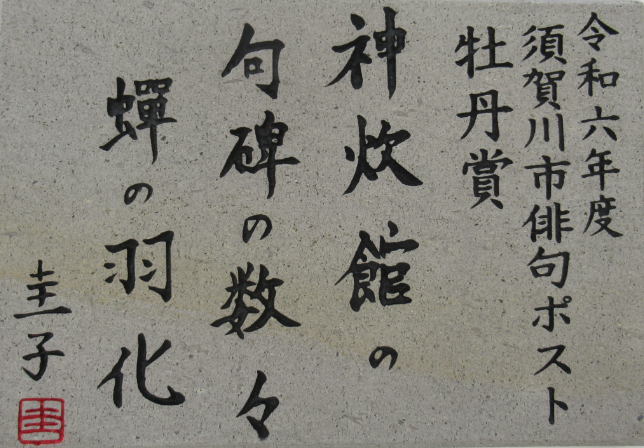 令和六年度
須賀川市俳句ポスト
牡丹賞
神炊館の
句碑の数々
蟬の羽化
圭子
圭